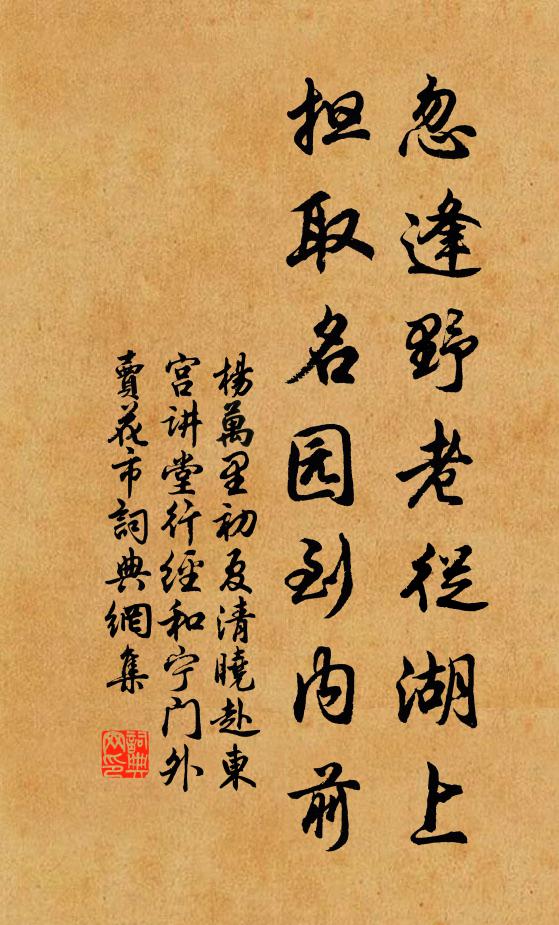 忽逢野老從湖上
担取名园到内前
楊萬里初夏清曉赴東
宫讲堂行經和宁门外
賣花市詞典網集
詞典
网印